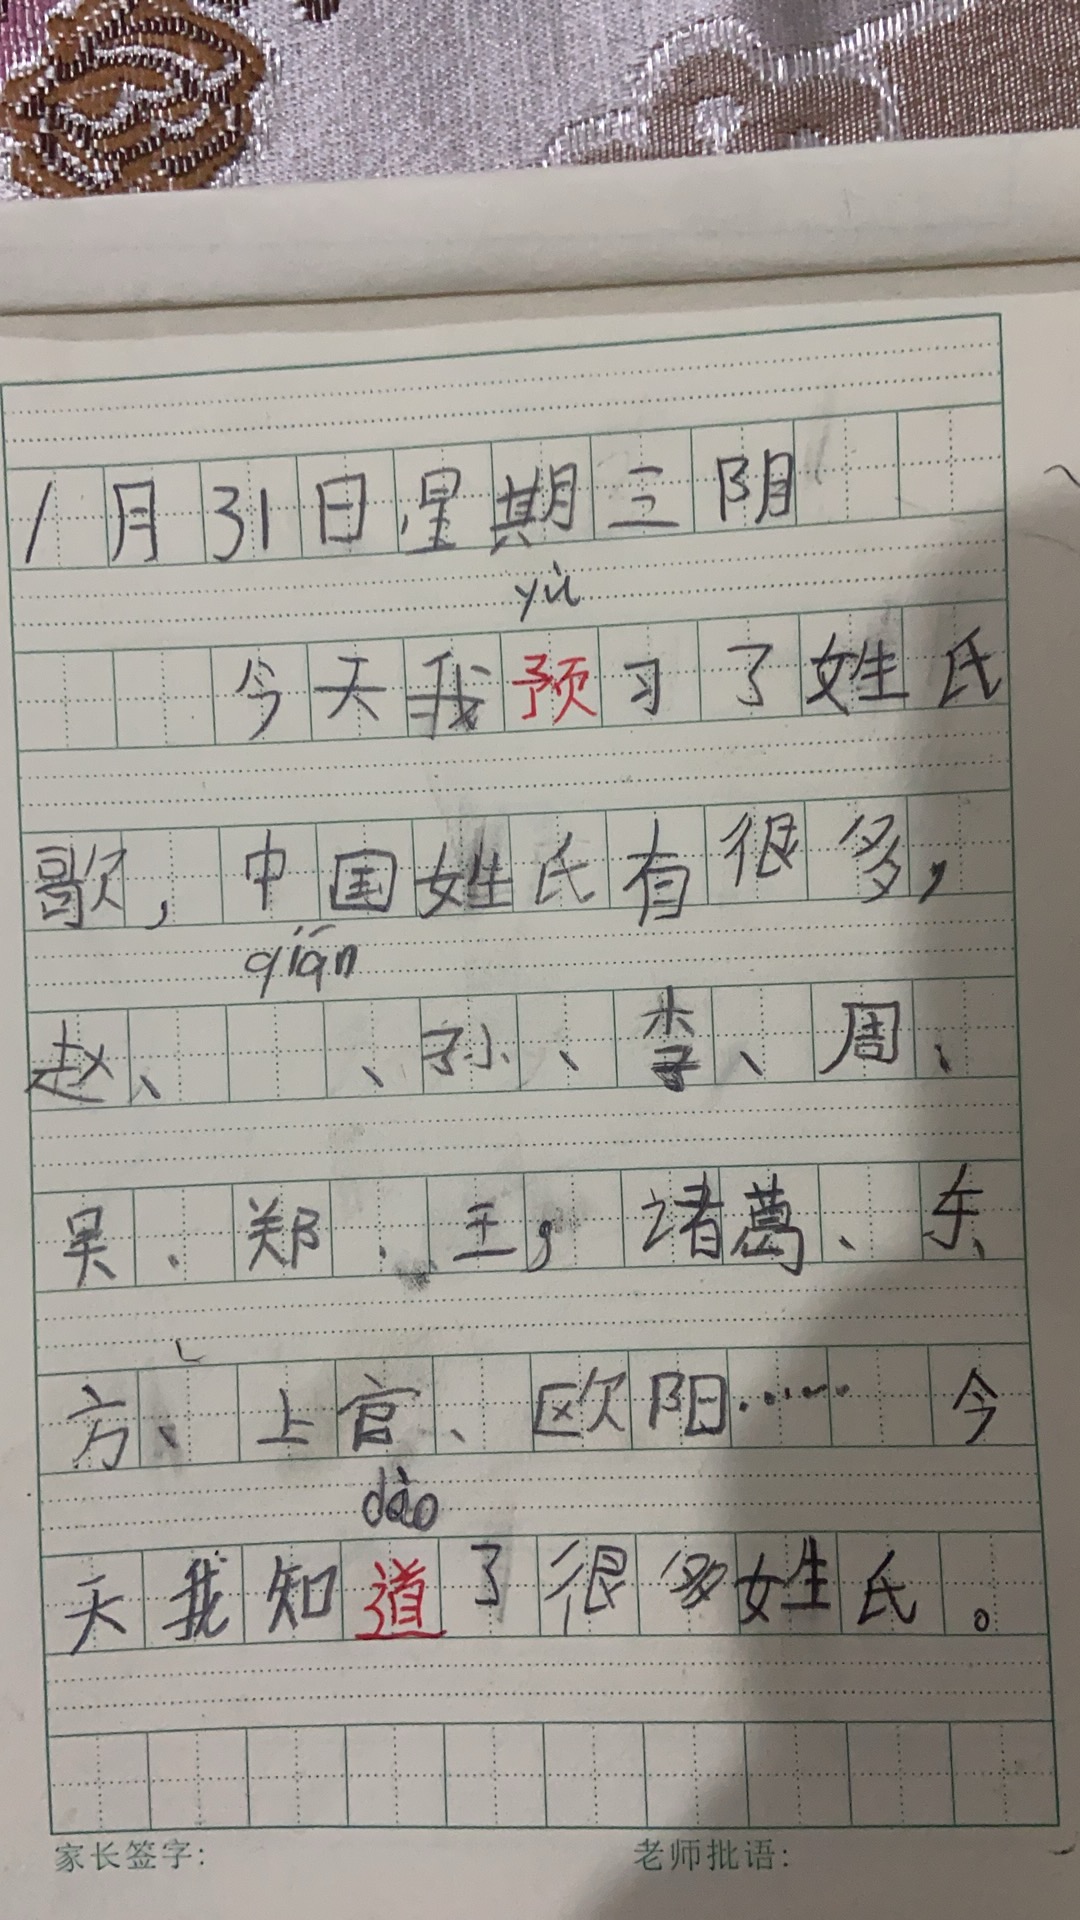 1月31日星期三阴
yù
今天我预习了姓氏
歌，中国姓氏有很多，
qián
赵、 、孙、李、周、
吴、郑、王，诸葛、东
方、上官、欧阳…… 今
dào
天我知道了很多姓氏。
家长签字: 老师批语: